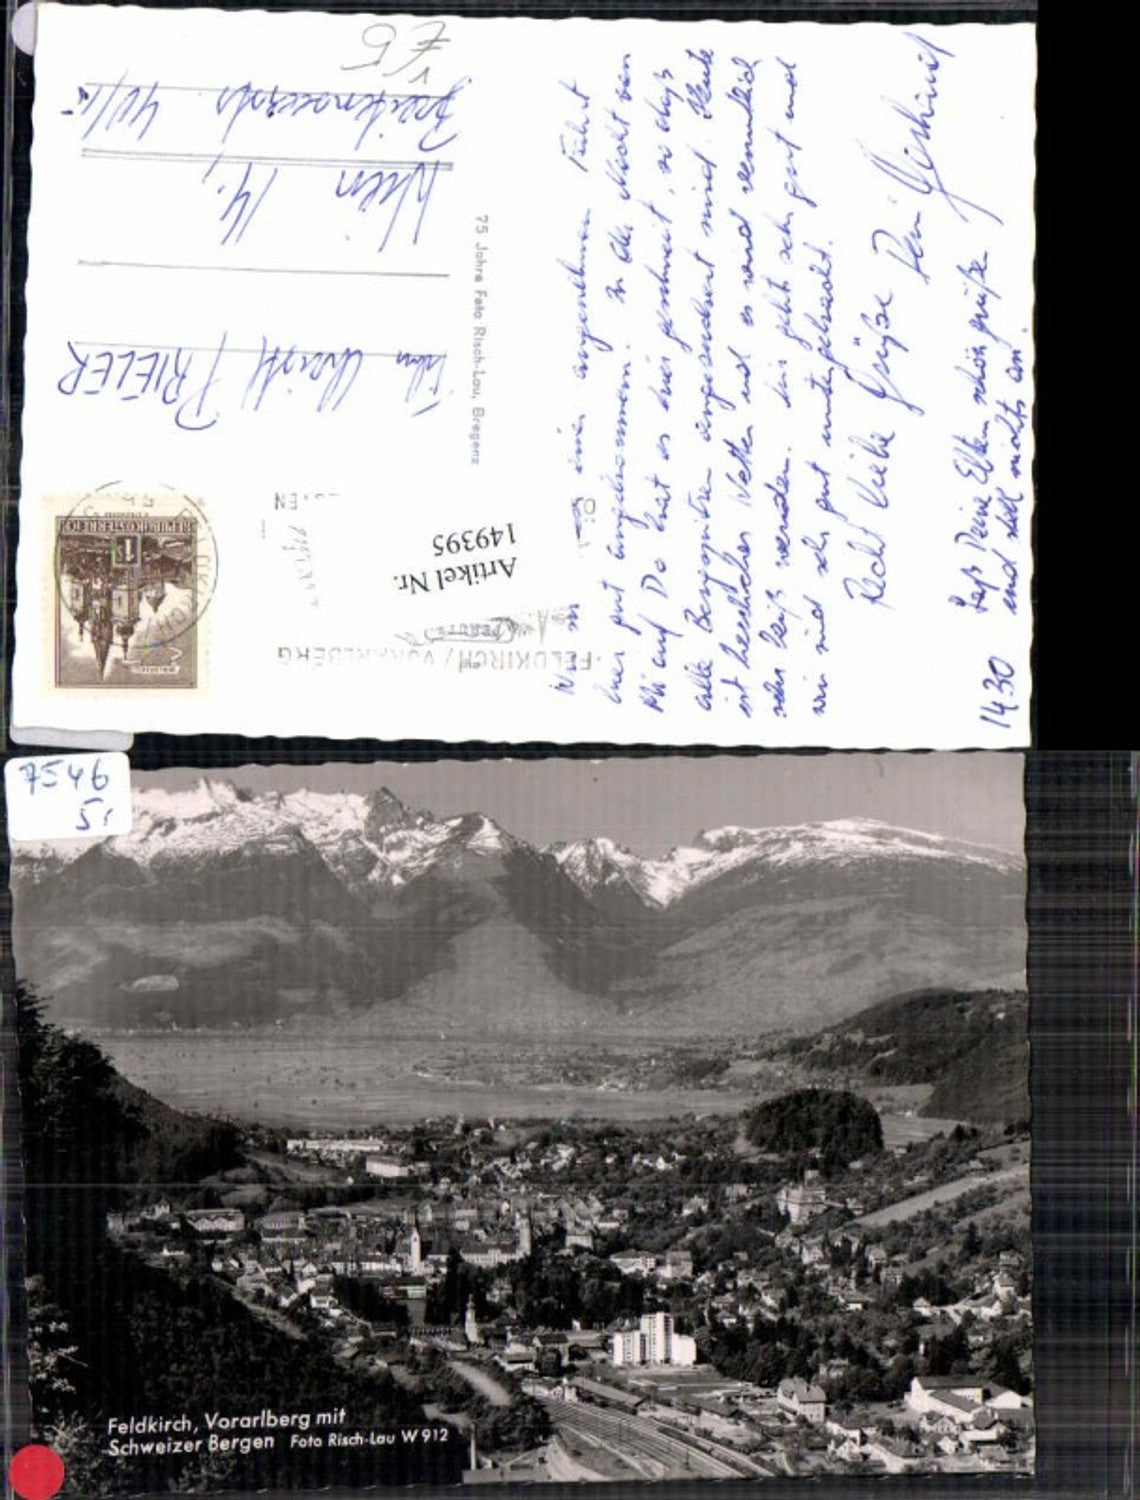 £ 5
Wien 14.,
PRIELER
75 Jahre Foto Risch-Lau, Bregenz
REPUBLIK ÖSTERREICH
FELDKIRCH / VORARLBERG
Artikel Nr.
149395
einer angenehmen Fahrt
hier gut angekommen. In der Nacht von
Mi auf Do hat es hier geschneit, so daß
alle Bergspitzen angezuckert sind. Heute
ist herrliches Wetter und es wird vermutlich
sehr heiß werden. Mir geht sehr gut und
wir sind sehr gut untergebracht.
Recht liebe Grüße Dein
Laß Deine Eltern schön grüßen
und stell nichts an!
1430
7546
5,-
Feldkirch, Vorarlberg mit
Schweizer Bergen Foto Risch-Lau W 912